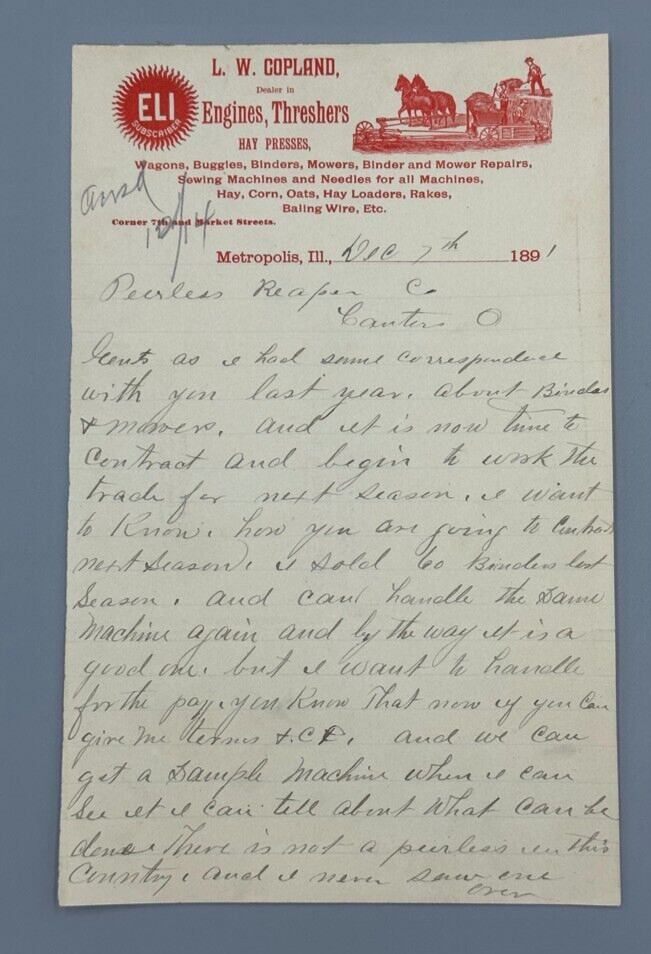 L. W. COPLAND,
Dealer in
Engines, Threshers
HAY PRESSES,
ELI
SUBSCRIBER
Wagons, Buggies, Binders, Mowers, Binder and Mower Repairs,
Sewing Machines and Needles for all Machines,
Hay, Corn, Oats, Hay Loaders, Rakes,
Baling Wire, Etc.
Corner 7th and Market Streets.
ansd
12/14
Metropolis, Ill., Dec 7th 1891
Peerless Reaper Co
Canton O
Gents as I had some correspondence
with you last year. about Binders
& mowers. and it is now time to
Contract and begin to work the
trade for next season. I want
to Know. how you are going to Contract
next season. I sold 60 Binders last
Season. and can handle the same
Machine again and by the way it is a
good one. but I want to handle
for the pay. you Know That now if you Can
give me terms &.C. and we can
get a Sample Machine when I can
See it I can tell about What can be
done. There is not a peerless in this
Country. and I never saw one
over